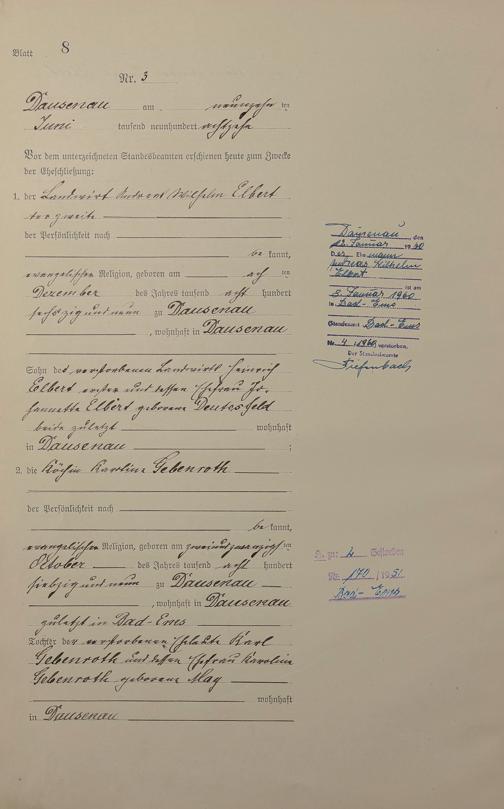 Blatt 8
Nr. 3
Dausenau am neunzehn ten
Juni tausend neunhundert achtzehn
Vor dem unterzeichneten Standesbeamten erschienen heute zum Zwecke
der Eheschließung:
1. der Landwirt Andreas Wilhelm Elbert
der zweite
der Persönlichkeit nach
be kannt,
evangelischer Religion, geboren am ach ten
Dezember des Jahres tausend acht hundert
sechszig und neun zu Dausenau
, wohnhaft in Dausenau
Sohn des verstorbenen Landwirts Heinrich
Elbert erster und dessen Ehefrau Jo-
hannette Elbert geborene
beide zuletzt wohnhaft
in Dausenau ;
2. die Köchin Karoline Gebenroth
der Persönlichkeit nach
be kannt,
evangelischer Religion, geboren am zweiundzwanzigsten
October des Jahres tausend acht hundert
siebzig und neun zu Dausenau
, wohnhaft in Dausenau
zuletzt in Bad-Ems
Tochter der verstorbenen Eheleute Karl
Gebenroth und dessen Ehefrau Karoline
Gebenroth geborene May
wohnhaft
in Dausenau
Dausenau, den
12. Januar 1960
Der Ehemann
Andreas Wilhelm
Elbert
ist am
3. Januar 1960
in Bad-Ems
(Standesamt Bad-Ems
Nr. 4 /1960) verstorben.
Der Standesbeamte
Tiefenbach
H. zu: 2. Gestorben
Nr. 170 / 1951
Bad-Ems